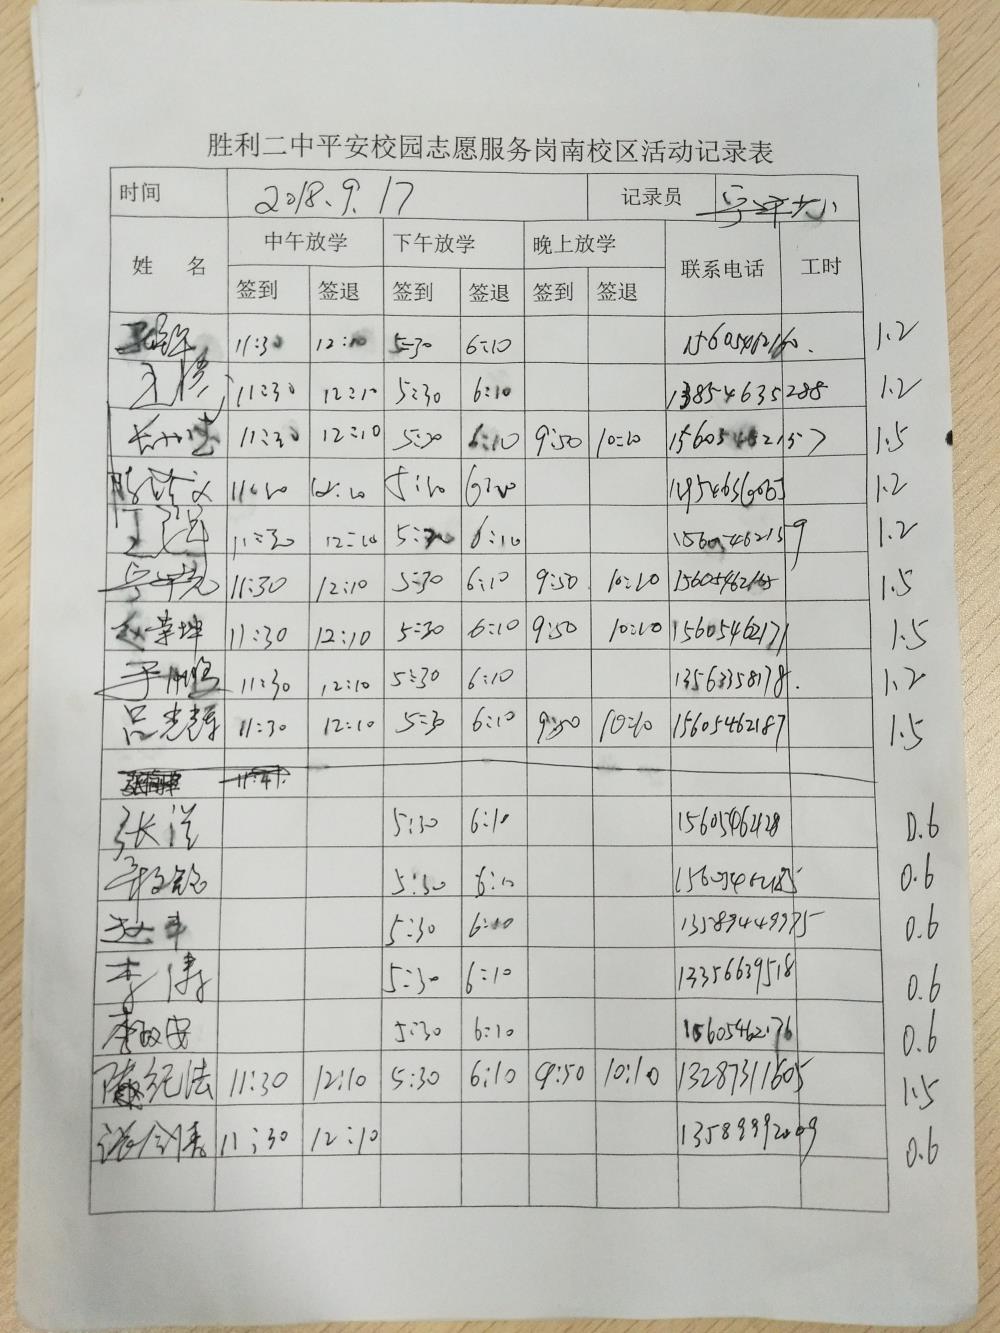 胜利二中平安校园志愿服务岗南校区活动记录表
时间 2018.9.17 记录员
姓 名 中午放学 下午放学 晚上放学 联系电话 工时
签到 签退 签到 签退 签到 签退
11:30 12:10 5:30 6:10 1.2
11:30 12:10 5:30 6:10 13854635288 1.2
11:30 12:10 5:30 6:10 9:50 10:10 15605462157 1.5
1.2
11:30 12:10 5:30 6:10 15605462159 1.2
11:30 12:10 5:30 6:10 9:50 10:10 1.5
赵荣坤 11:30 12:10 5:30 6:10 9:50 10:10 15605462171 1.5
11:30 12:10 5:30 6:10 13563358178. 1.2
吕光辉 11:30 12:10 5:30 6:10 9:50 10:10 15605462187 1.5
张洋 5:30 6:10 0.6
5:30 6:10 15605462185 0.6
赵丰 5:30 6:10 13589449975 0.6
李涛 5:30 6:10 13356639518 0.6
李政安 5:30 6:10 15605462176 0.6
陈纪法 11:30 12:10 5:30 6:10 9:50 10:10 13287311605 1.5
11:30 12:10 13589992009 0.6